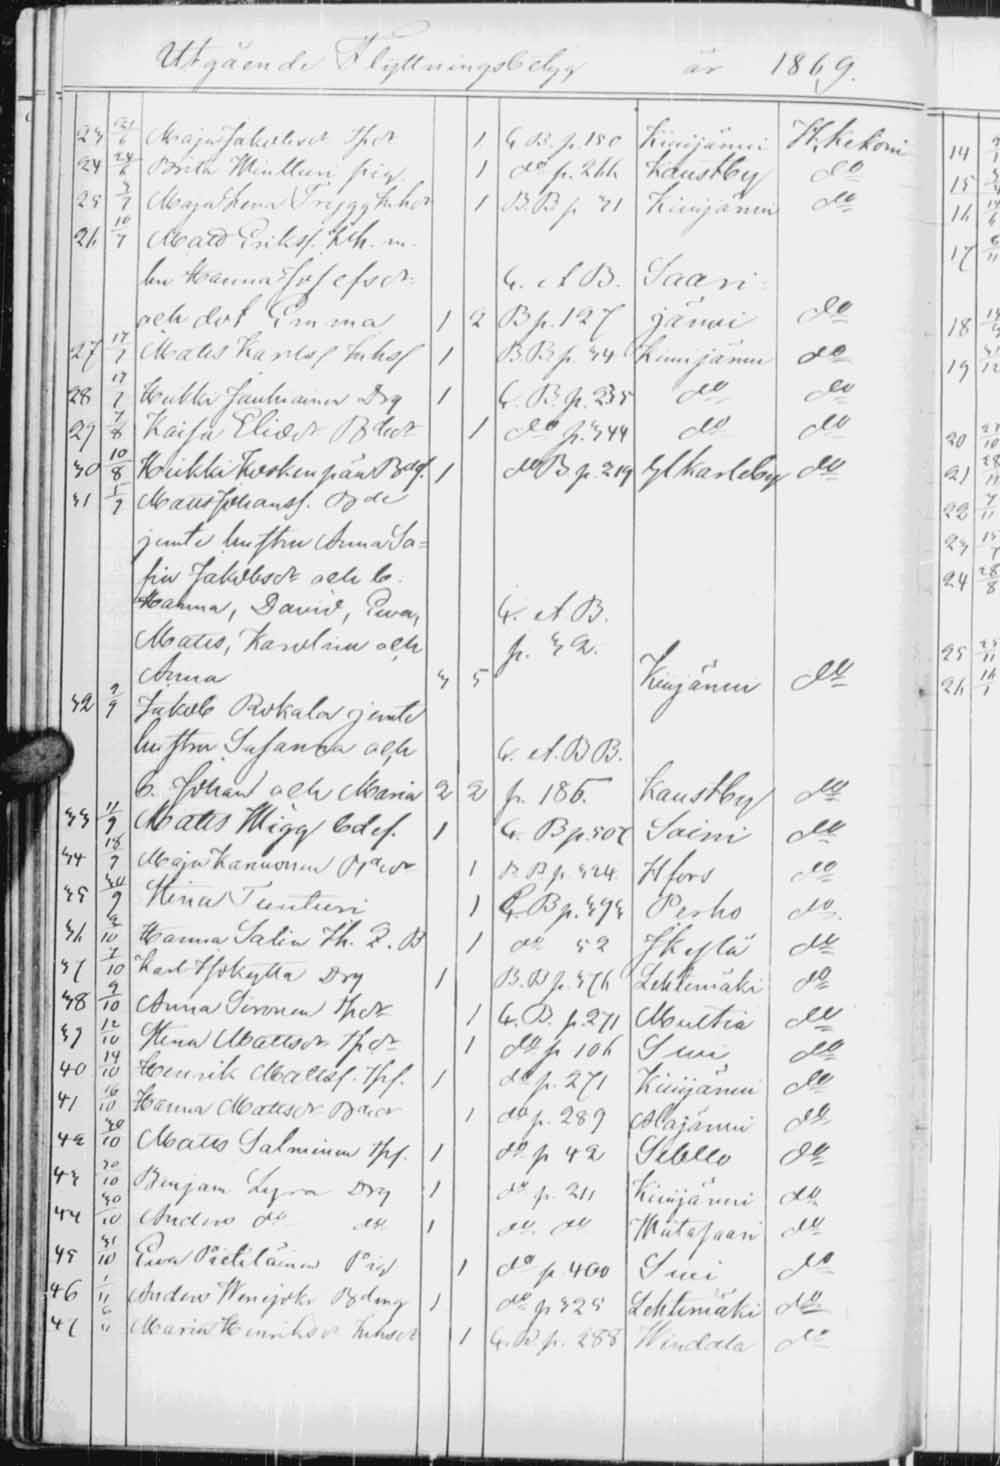 Utgående Flyttningsbetyg år 1869.
23 21/6 Maja Jakobsdr Thdr 1 C. B. p. 150 Kivijärvi H. Kekoni
24 24/6 Brita Wintturi pig. 1 do p. 266 Kaustby do
25 3/7 Maja Lena Trygg Inhdr 1 B. B p 31 Kivijärvi do
26 10/7 Mats Eriksf. Inh. m.
hu Hanna Josefsdr C. A B. Saari-
och dot Emma 1 2 B p. 127 järvi do
27 17/7 Matts Karlsf Inhsf 1 B. B p. 34 Kivijärvi do
28 17/7 Jauhiainen Drg 1 C. B. p. 235 do do
29 7/8 Kaisa Eliædr Bdr 1 do p. 344 do do
30 10/8 Heikki Koskenpää Bdsf. 1 do B. p. 219 Gl Karleby do
31 1/9 Matts Johansf. Bde
jemte hustru Anna So-
fia Jakobsdr och b.
Hanna, David, Ewa, C. A B.
Matts, Karolina och p. 32.
Anna 3 5 Kivijärvi do
32 2/9 Jakob Pokala jemte
hustru Susanna och C. A. B B.
b. Johan och Maria 2 2 p. 186. Kaustby do
33 11/9 Matts Wigg 1 C. B p 507 Soini do
34 18/9 Maja Kannonen 1 B B p 324. Hfors do
35 30/9 Stina Tunturi 1 C. B p. 393 Perho do
36 2/10 Hanna Salin Th. Q. B 1 do 52 do
37 7/10 Karl Hokytta Drg 1 B. B p. 376 Lehtimäki do
38 9/10 Anna Sironen Thdr 1 C. B. p. 271 Multia do
39 12/10 Stina Mattsdr Thdr 1 do p 106 do
40 14/10 Henrik Mattsf. Thf. 1 do p. 271 Kivijärvi do
41 16/10 Hanna Mattsdr 1 do p. 289 Alajärvi do
42 30/10 Matts Salminen Thf. 1 do p 42 do
43 30/10 Benjam Lyra Drg 1 do p. 211 Kivijärvi do
44 30/10 Anders do do 1 do do Wiitasaari do
45 31/10 Ewa Pietiläinen Pig 1 do p. 400 do
46 1/11 Anders 1 do p 325 Lehtimäki do
47 6/11 Maria Henriksdr Inhsdr 1 C. B p. 288 Windala do
14
15
16
17
18
19
20
21
22
23
24
25
26